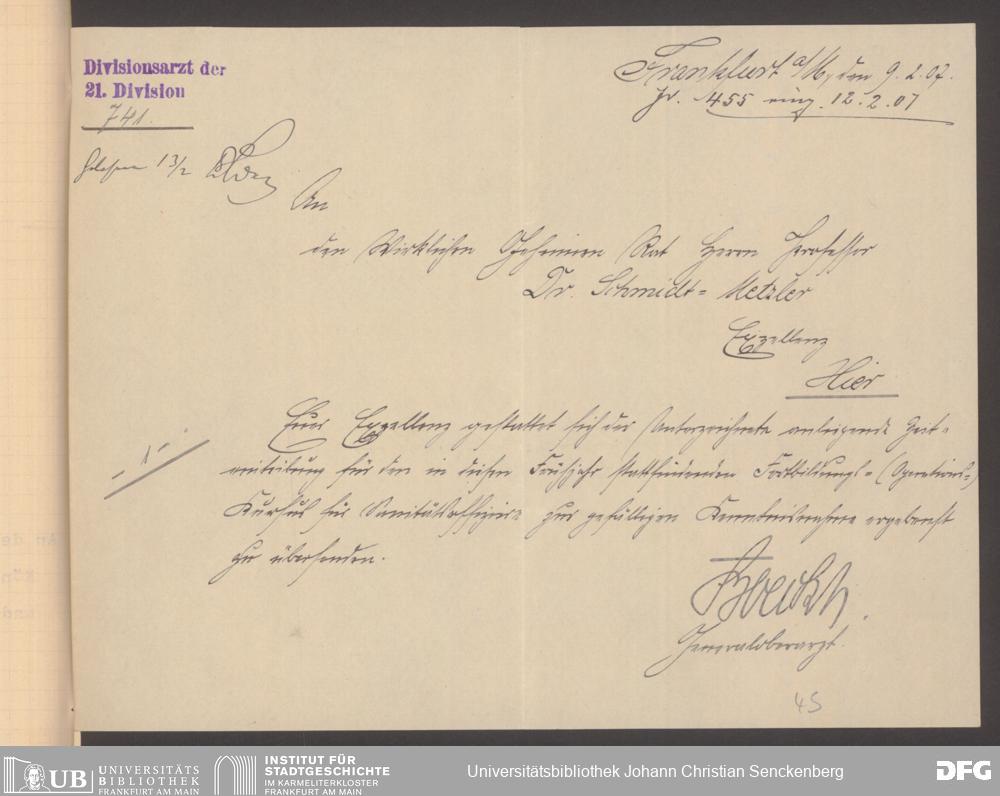 Divisionsarzt der
21. Division
741.
Gelesen 13/2
Frankfurt a/M, den 9.2.07.
Jr. 455 eing. 12.2.07
An
den Wirklichen Geheimen Rat Herrn Professor
Dr. Schmidt-Metzler
Exzellenz
Hier
- 1 -
Euer Exzellenz gestattet sich der Unterzeichnete anliegende Zeit-
einteilung für den in diesem Frühjahr stattfindenden Fortbildungs- (Operations-)
Kursus für Sanitätsoffiziere zur gefälligen Kenntnisnahme ergebenst
zu übersenden.
Generaloberarzt.
45
UB UNIVERSITÄTS
BIBLIOTHEK
FRANKFURT AM MAIN
INSTITUT FÜR
STADTGESCHICHTE
IM KARMELITERKLOSTER
FRANKFURT AM MAIN
Universitätsbibliothek Johann Christian Senckenberg
DFG